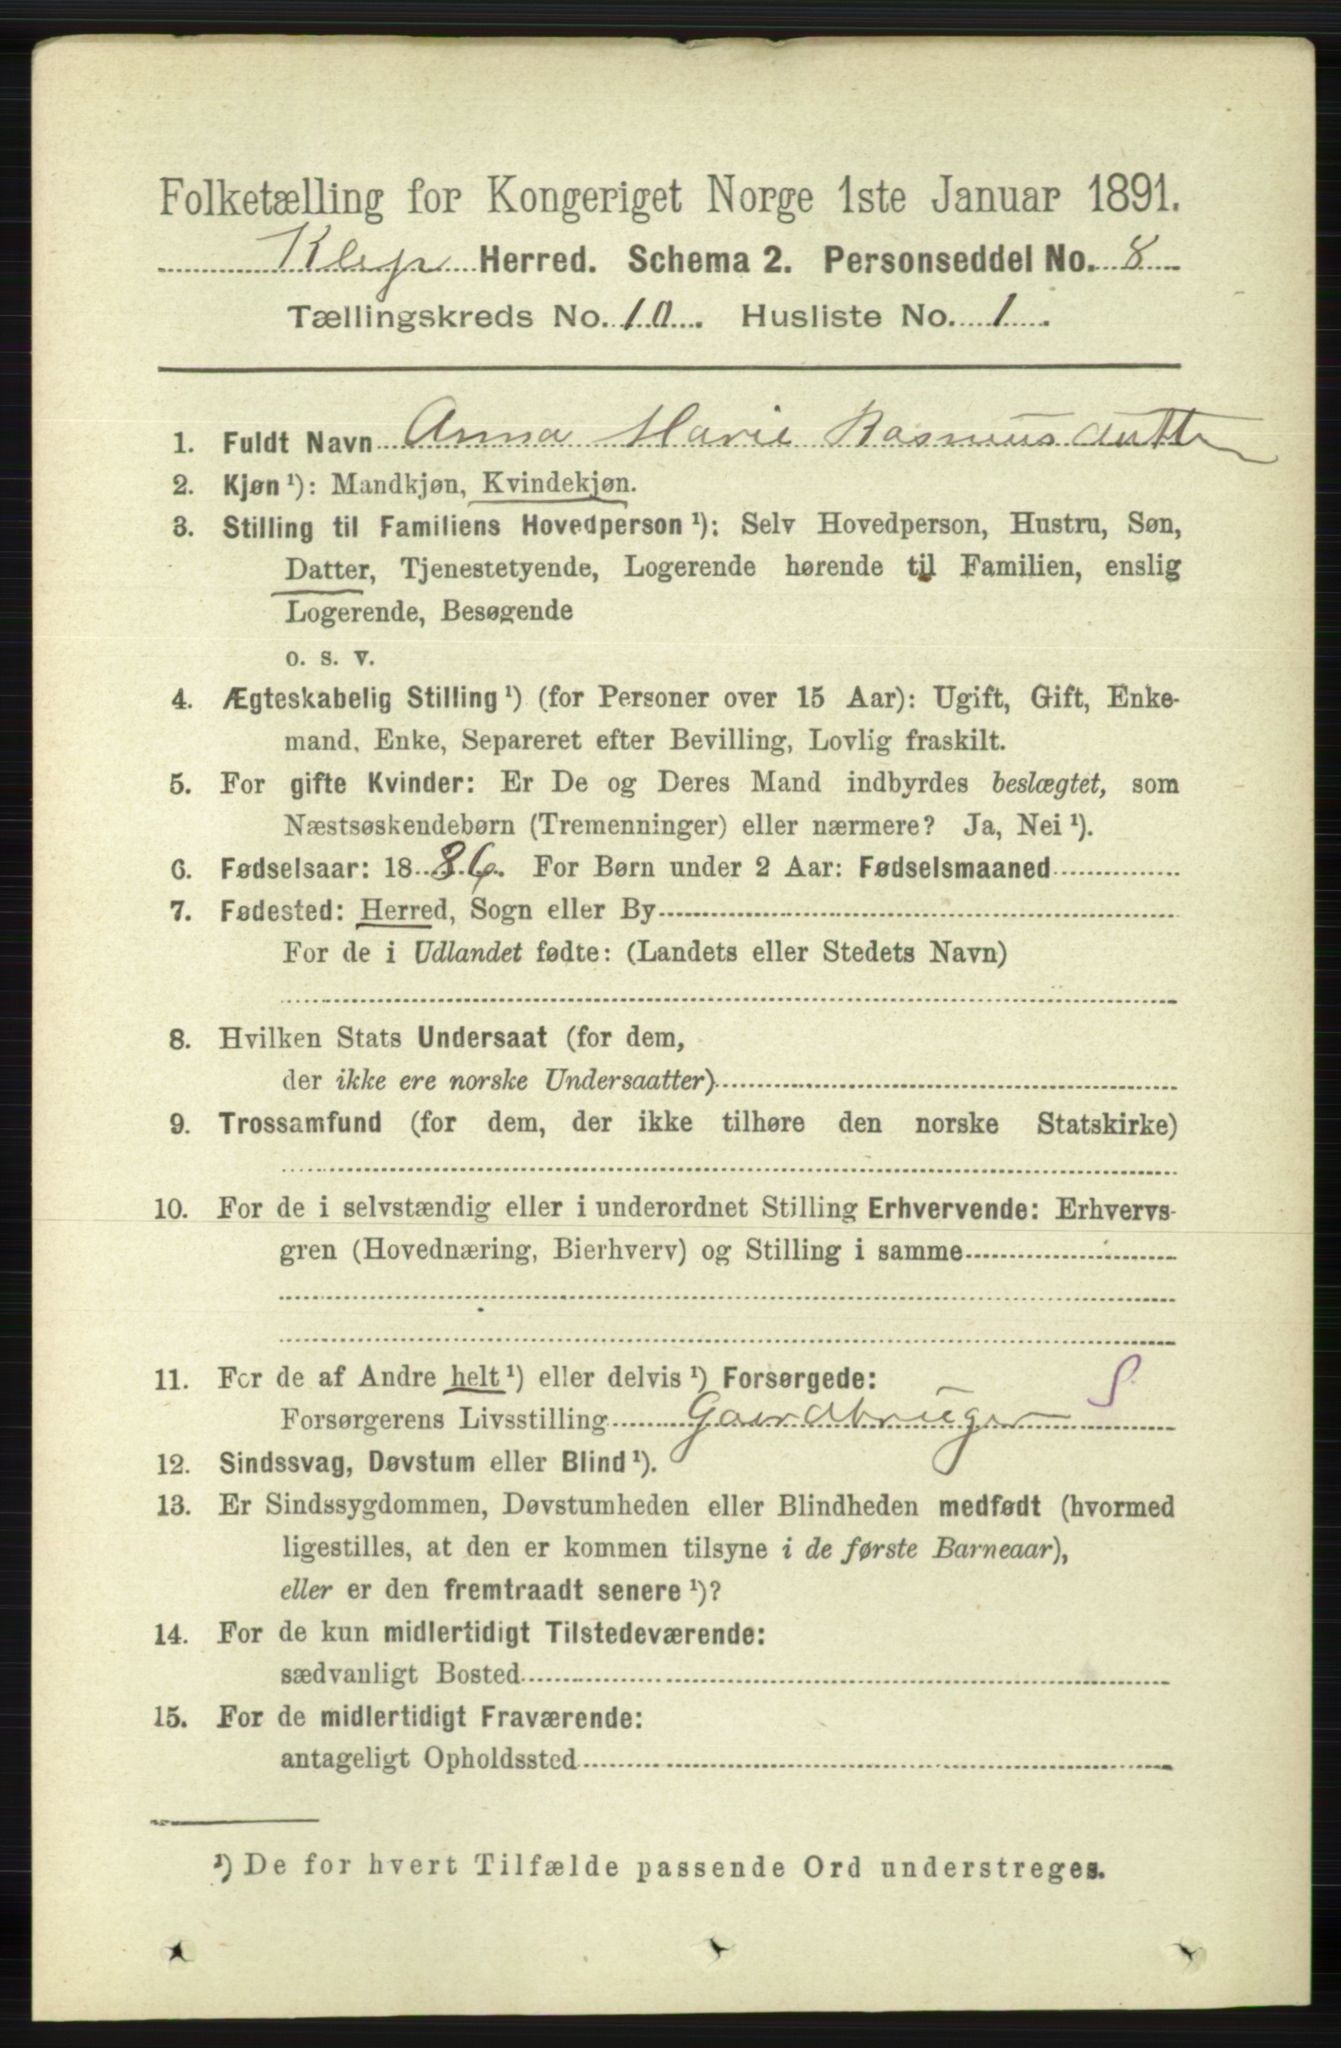 Folketælling for Kongeriget Norge 1ste Januar 1891.
Klep Herred. Schema 2. Personseddel No. 8
Tællingskreds No. 10. Husliste No. 1.
1. Fuldt Navn Anna Marie Rasmusdatter
2. Kjøn ¹): Mandkjøn, Kvindekjøn.
3. Stilling til Familiens Hovedperson ¹): Selv Hovedperson, Hustru, Søn,
Datter, Tjenestetyende, Logerende hørende til Familien, enslig
Logerende, Besøgende
o. s. v.
4. Ægteskabelig Stilling ¹) (for Personer over 15 Aar): Ugift, Gift, Enke-
mand, Enke, Separeret efter Bevilling, Lovlig fraskilt.
5. For gifte Kvinder: Er De og Deres Mand indbyrdes beslægtet, som
Næstsøskendebørn (Tremenninger) eller nærmere? Ja, Nei ¹).
6. Fødselsaar: 1886. For Børn under 2 Aar: Fødselsmaaned
7. Fødested: Herred, Sogn eller By
For de i Udlandet fødte: (Landets eller Stedets Navn)
8. Hvilken Stats Undersaat (for dem,
der ikke ere norske Undersaatter)
9. Trossamfund (for dem, der ikke tilhøre den norske Statskirke)
10. For de i selvstændig eller i underordnet Stilling Erhvervende: Erhvervs-
gren (Hovednæring, Bierhverv) og Stilling i samme
11. For de af Andre helt ¹) eller delvis ¹) Forsørgede:
Forsørgerens Livsstilling Gaardbruger S
12. Sindssvag, Døvstum eller Blind ¹).
13. Er Sindssygdommen, Døvstumheden eller Blindheden medfødt (hvormed
ligestilles, at den er kommen tilsyne i de første Barneaar),
eller er den fremtraadt senere ¹)?
14. For de kun midlertidigt Tilstedeværende:
sædvanligt Bosted
15. For de midlertidigt Fraværende:
antageligt Opholdssted
¹) De for hvert Tilfælde passende Ord understreges.